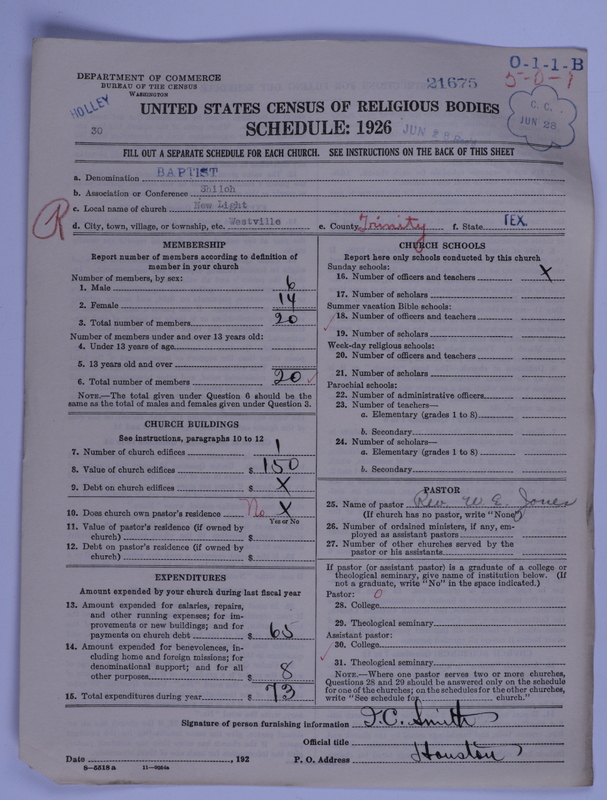 DEPARTMENT OF COMMERCE
BUREAU OF THE CENSUS
WASHINGTON
HOLLEY
30
21675
O-1-1-B
5-0-1
C. C.
JUN 28
UNITED STATES CENSUS OF RELIGIOUS BODIES
SCHEDULE: 1926
JUN 28
FILL OUT A SEPARATE SCHEDULE FOR EACH CHURCH. SEE INSTRUCTIONS ON THE BACK OF THIS SHEET
a. Denomination BAPTIST
b. Association or Conference Shiloh
c. Local name of church New Light
R
d. City, town, village, or township, etc. Westville e. County Trinity f. State TEX.
MEMBERSHIP
Report number of members according to definition of
member in your church
Number of members, by sex:
1. Male 6
2. Female 14
3. Total number of members 20
Number of members under and over 13 years old:
4. Under 13 years of age
5. 13 years old and over
6. Total number of members 20
NOTE.—The total given under Question 6 should be the
same as the total of males and females given under Question 3.
CHURCH BUILDINGS
See instructions, paragraphs 10 to 12
7. Number of church edifices 1
8. Value of church edifices $ 150
9. Debt on church edifices $ X
10. Does church own pastor's residence No X
Yes or No
11. Value of pastor's residence (if owned by
church) $
12. Debt on pastor's residence (if owned by
church) $
EXPENDITURES
Amount expended by your church during last fiscal year
13. Amount expended for salaries, repairs,
and other running expenses; for im-
provements or new buildings; and for
payments on church debt $ 65
14. Amount expended for benevolences, in-
cluding home and foreign missions; for
denominational support; and for all
other purposes $ 8
15. Total expenditures during year $ 73
CHURCH SCHOOLS
Report here only schools conducted by this church
Sunday schools:
16. Number of officers and teachers X
17. Number of scholars
Summer vacation Bible schools:
18. Number of officers and teachers
19. Number of scholars
Week-day religious schools:
20. Number of officers and teachers
21. Number of scholars
Parochial schools:
22. Number of administrative officers
23. Number of teachers—
a. Elementary (grades 1 to 8)
b. Secondary
24. Number of scholars—
a. Elementary (grades 1 to 8)
b. Secondary
PASTOR
25. Name of pastor Rev. W. E. Jones
(If church has no pastor, write "None")
26. Number of ordained ministers, if any, em-
ployed as assistant pastors
27. Number of other churches served by the
pastor or his assistants
If pastor (or assistant pastor) is a graduate of a college or
theological seminary, give name of institution below. (If
not a graduate, write "No" in the space indicated.)
Pastor: 0
28. College
29. Theological seminary
Assistant pastor:
30. College
31. Theological seminary
NOTE.—Where one pastor serves two or more churches,
Questions 28 and 29 should be answered only on the schedule
for one of the churches; on the schedules for the other churches,
write "See schedule for church."
Signature of person furnishing information I. C. Smith
Official title
Date , 192 P. O. Address Houston
8—5318 a 11—9054a